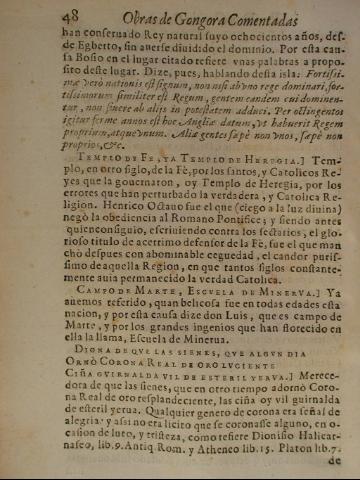 48 Obras de Gongora Comentadas
han conseruado Rey natural suyo ochocientos años, des-
de Egberto, sin auerse diuidido el dominio. Por esta cau-
sa Bosio en el lugar citado refiere vnas palabras a propo-
sito deste lugar. Dize, pues, hablando desta isla: Fortissi-
mæ verò nationis est signum, non nisi ab vno rege dominari, for-
tissimorum similiter est Regum, gentem eandem cui dominen-
tur, non sinere ab aliis in potestatem adduci. Per octingentos
igitur ferme annos est hoc Angliæ datum, vt habuerit Regem
proprium, atque vnum. Aliæ gentes sæpè non vnos, sæpè non
proprios, &c.
TEMPLO DE FE, YA TEMPLO DE HEREGIA.] Tem-
plo, en otro siglo, de la Fè, por los santos, y Catolicos Re-
yes que la gouernaron, oy Templo de Heregia, por los
errores que han perturbado la verdadera, y Catolica Re-
ligion. Henrico Octauo fue el que (ciego a la luz diuina)
negò la obediencia al Romano Pontifice; y siendo antes
quien consiguiò, escriuiendo contra los sectarios, el glo-
rioso titulo de acerrimo defensor de la Fè, fue el que man
chò despues con abominable ceguedad, el candor puris-
simo de aquella Region, en que tantos siglos constante-
mente auia permanecido la verdad Catolica.
CAMPO DE MARTE, ESCUELA DE MINERVA.] Ya
auemos referido, quan belicosa fue en todas edades esta
nacion, y por esta causa dize don Luis, que es campo de
Marte, y por los grandes ingenios que han florecido en
ella la llama, Escuela de Minerua.
DIGNA DE QVE LAS SIENES, QVE ALGVN DIA
ORNÒ CORONA REAL DE ORO LUCIENTE
CIÑA GVIRNALDA VIL DE ESTERIL YERVA.] Merece-
dora de que las sienes, que en otro tiempo adornò Coro-
na Real de oro resplandeciente, las ciña oy vil guirnalda
de esteril yerua. Qualquier genero de corona era señal de
alegria: y assi no era licito que se coronasse alguno, en o-
casion de luto, y tristeza, como refiere Dionisio Halicar-
naseo, lib. 9. Antiq. Rom. y Atheneo lib. 15. Platon lib. 7.
de